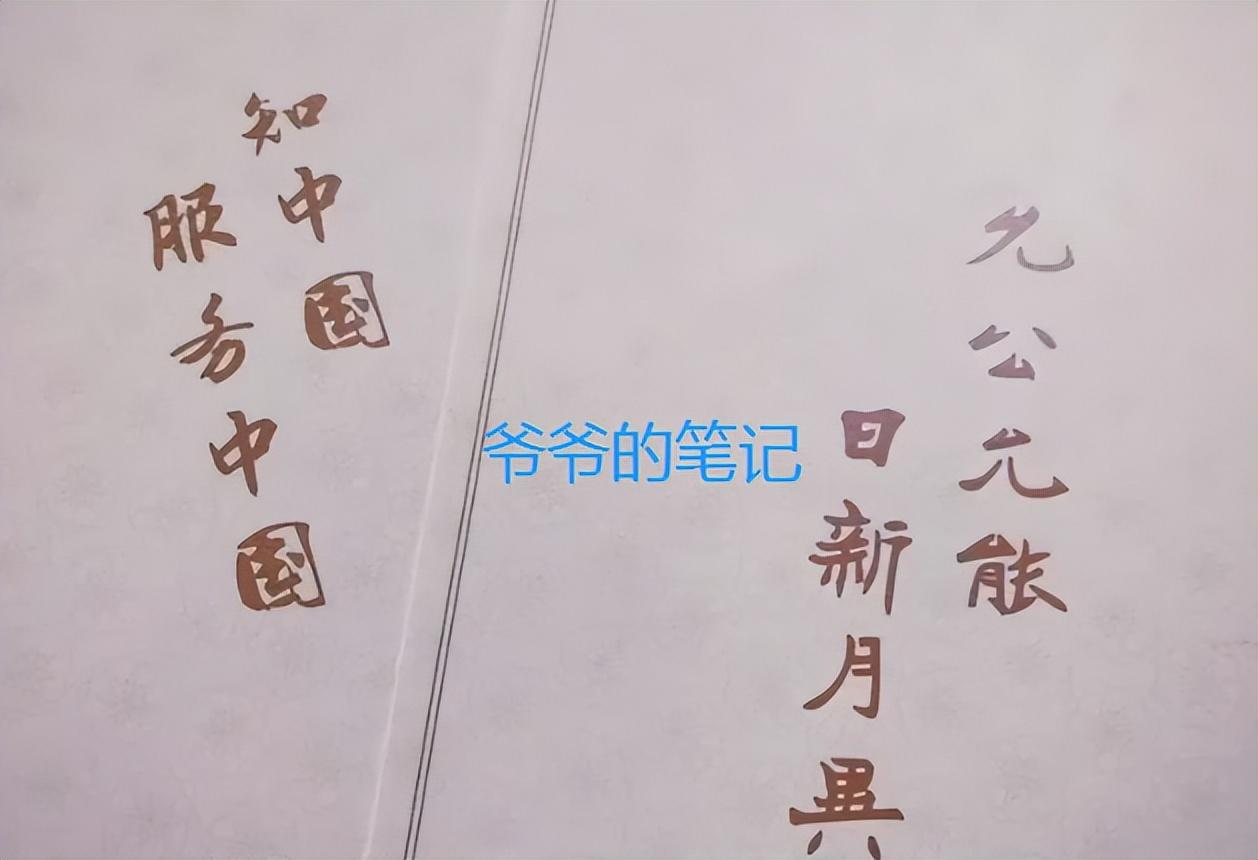 允公允能
日新月異
知中国
服务中国
爷爷的笔记